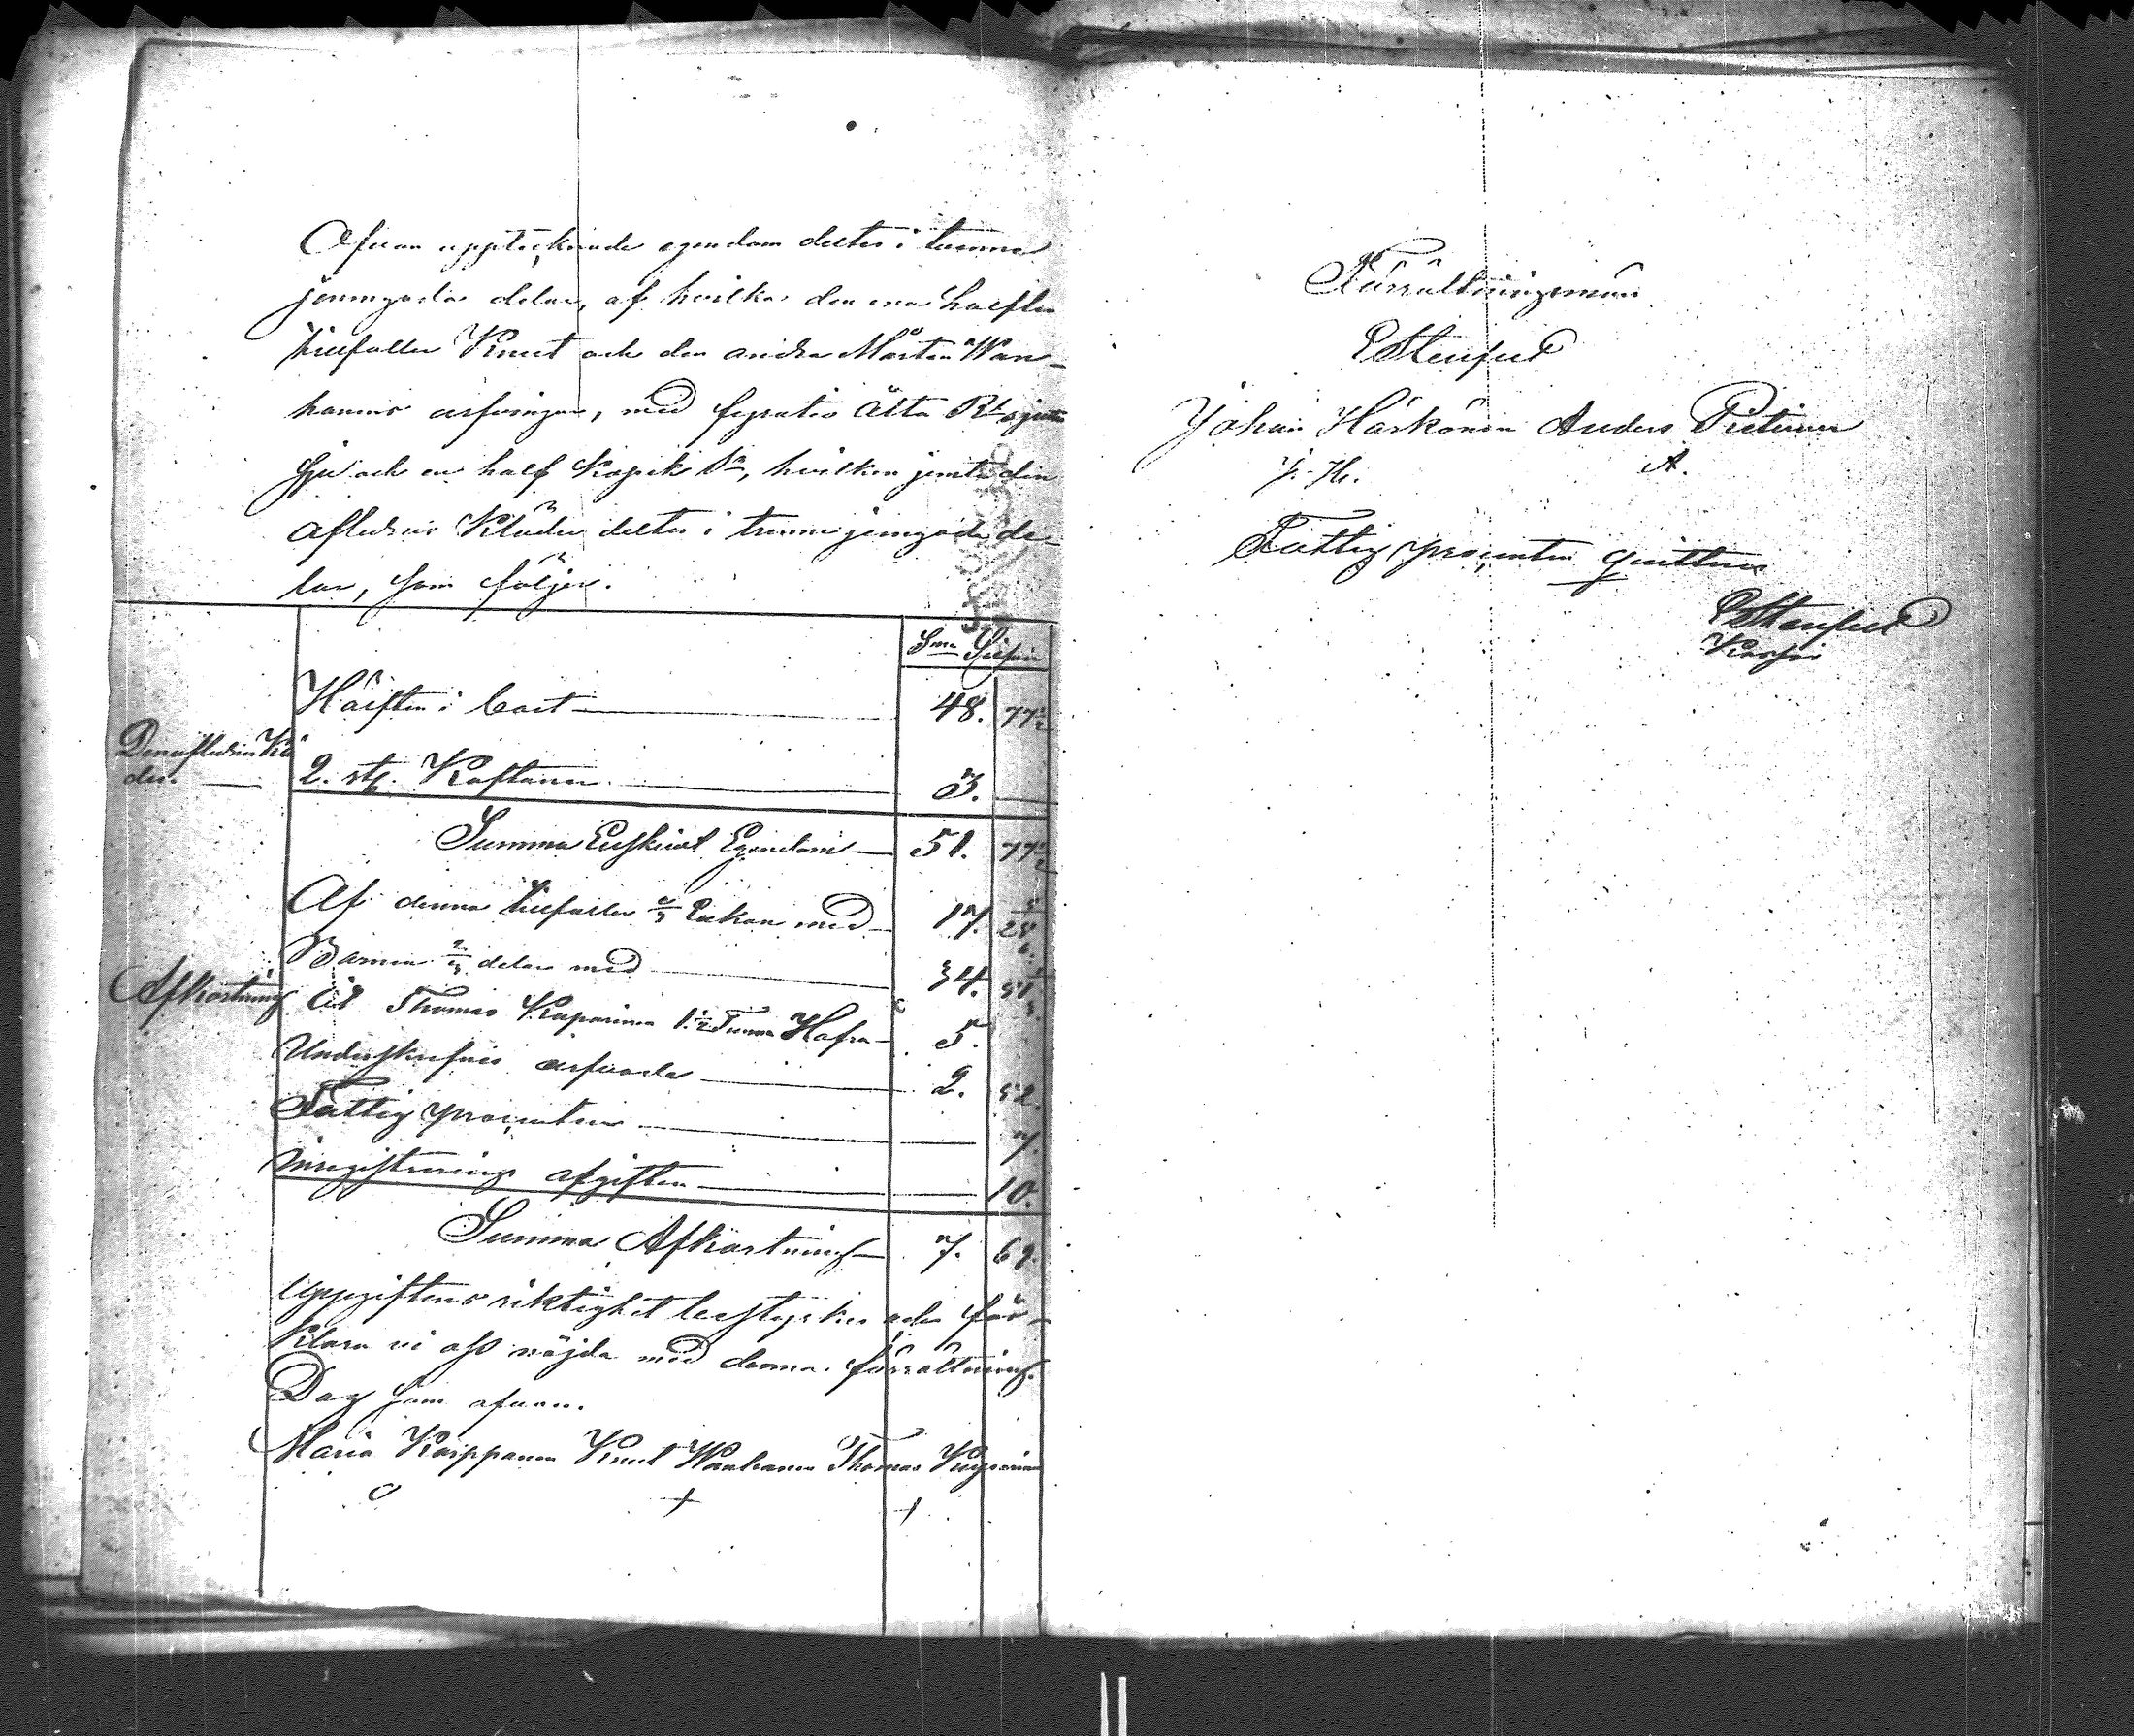 Ofvan upptecknade egendom deltes i tvenne
jemngoda delar, af hvilka den ena hälften
tillfaller Knut och den andra Mårten Wan-
hanens arfvingar, med fyratio åtta Rb sjutio
sju och en half Kopek Sr, hvilken jemte den
aflednes Kläder deltes i trenne jemgoda de-
lar, som följer.
Sma Silfver
Hälften i boet 48. 77 1/2
Den aflednes Klä
der. 2. st. Kaftaner 3.
Summa Enskildt Egendom 51. 77 1/2
Af denna tillfaller 1/3 Enkan med 17.
Barnen 2/3 delar med 34.
Afkortning Åt Thomas Kuparinen 1 1/2 Tunna Hafra 5.
Underskrefnes arfvode 2. 52.
Fattig procenten 7.
Inregistrerings afgiften 10.
Summa Afkortning 7. 69.
Uppgiftens riktighet bestyrkes och för-
klara vi oss nöjda med denna förrättning.
Dag som ofvan.
Maria Karppanen Knut Wanhanen Thomas Kuparinen
Förrättningsmän
Johan Härkönen Anders Pietinen
J. H. A.
Fattig procenten quitteras